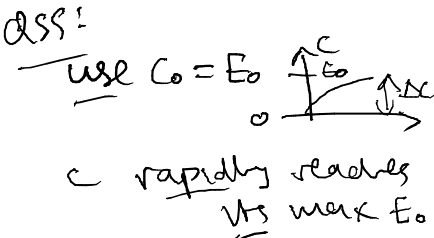 QSS:
use C₀ = E₀
C
E₀
ΔC
0
C rapidly reaches
its max E₀